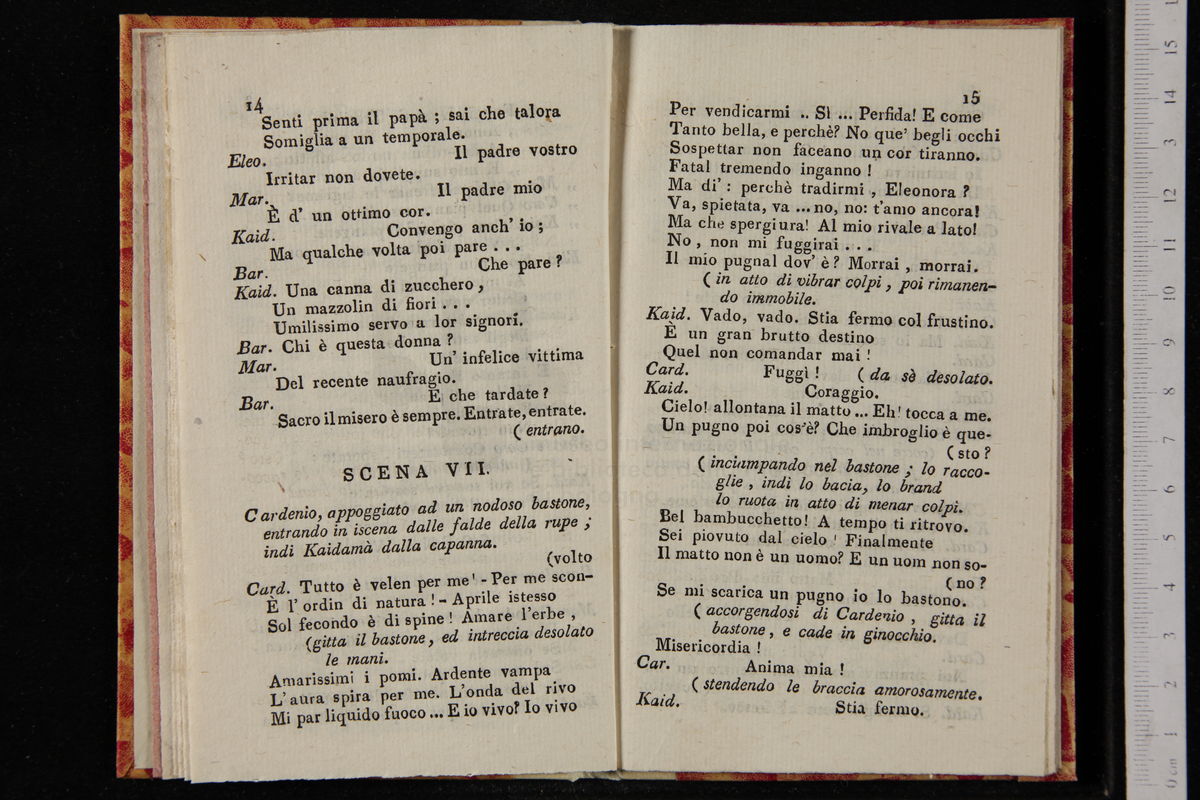 14
Senti prima il papà ; sai che talora
Somiglia a un temporale.
Eleo. Il padre vostro
Irritar non dovete.
Mar. Il padre mio
È d' un ottimo cor.
Kaid. Convengo anch' io ;
Ma qualche volta poi pare . . .
Bar. Che pare ?
Kaid. Una canna di zucchero ,
Un mazzolin di fiori . . .
Umilissimo servo a lor signori.
Bar. Chi è questa donna ?
Mar. Un' infelice vittima
Del recente naufragio.
Bar. E che tardate ?
Sacro il misero è sempre. Entrate, entrate.
( entrano.
SCENA VII.
Cardenio, appoggiato ad un nodoso bastone,
entrando in iscena dalle falde della rupe ;
indi Kaidamà dalla capanna.
(volto
Card. Tutto è velen per me ! - Per me scon-
È l' ordin di natura ! - Aprile istesso
Sol fecondo è di spine ! Amare l'erbe ,
(gitta il bastone, ed intreccia desolato
le mani.
Amarissimi i pomi. Ardente vampa
L' aura spira per me. L'onda del rivo
Mi par liquido fuoco ... E io vivo? Io vivo
15
Per vendicarmi .. Sì ... Perfida! E come
Tanto bella, e perchè? No que' begli occhi
Sospettar non faceano un cor tiranno.
Fatal tremendo inganno !
Ma di' : perchè tradirmi , Eleonora ?
Va, spietata, va ... no, no: t'amo ancora!
Ma che spergiura! Al mio rivale a lato!
No , non mi fuggirai . . .
Il mio pugnal dov' è ? Morrai , morrai.
( in atto di vibrar colpi , poi rimanen-
do immobile.
Kaid. Vado, vado. Stia fermo col frustino.
È un gran brutto destino
Quel non comandar mai !
Card. Fuggì ! ( da sè desolato.
Kaid. Coraggio.
Cielo! allontana il matto ... Eh! tocca a me.
Un pugno poi cos'è? Che imbroglio è que-
( sto ?
( inciampando nel bastone ; lo racco-
glie , indi lo bacia, lo brand
lo ruota in atto di menar colpi.
Bel bambucchetto! A tempo ti ritrovo.
Sei piovuto dal cielo ! Finalmente
Il matto non è un uomo? E un uom non so-
( no ?
Se mi scarica un pugno io lo bastono.
( accorgendosi di Cardenio , gitta il
bastone , e cade in ginocchio.
Misericordia !
Car. Anima mia !
( stendendo le braccia amorosamente.
Kaid. Stia fermo.